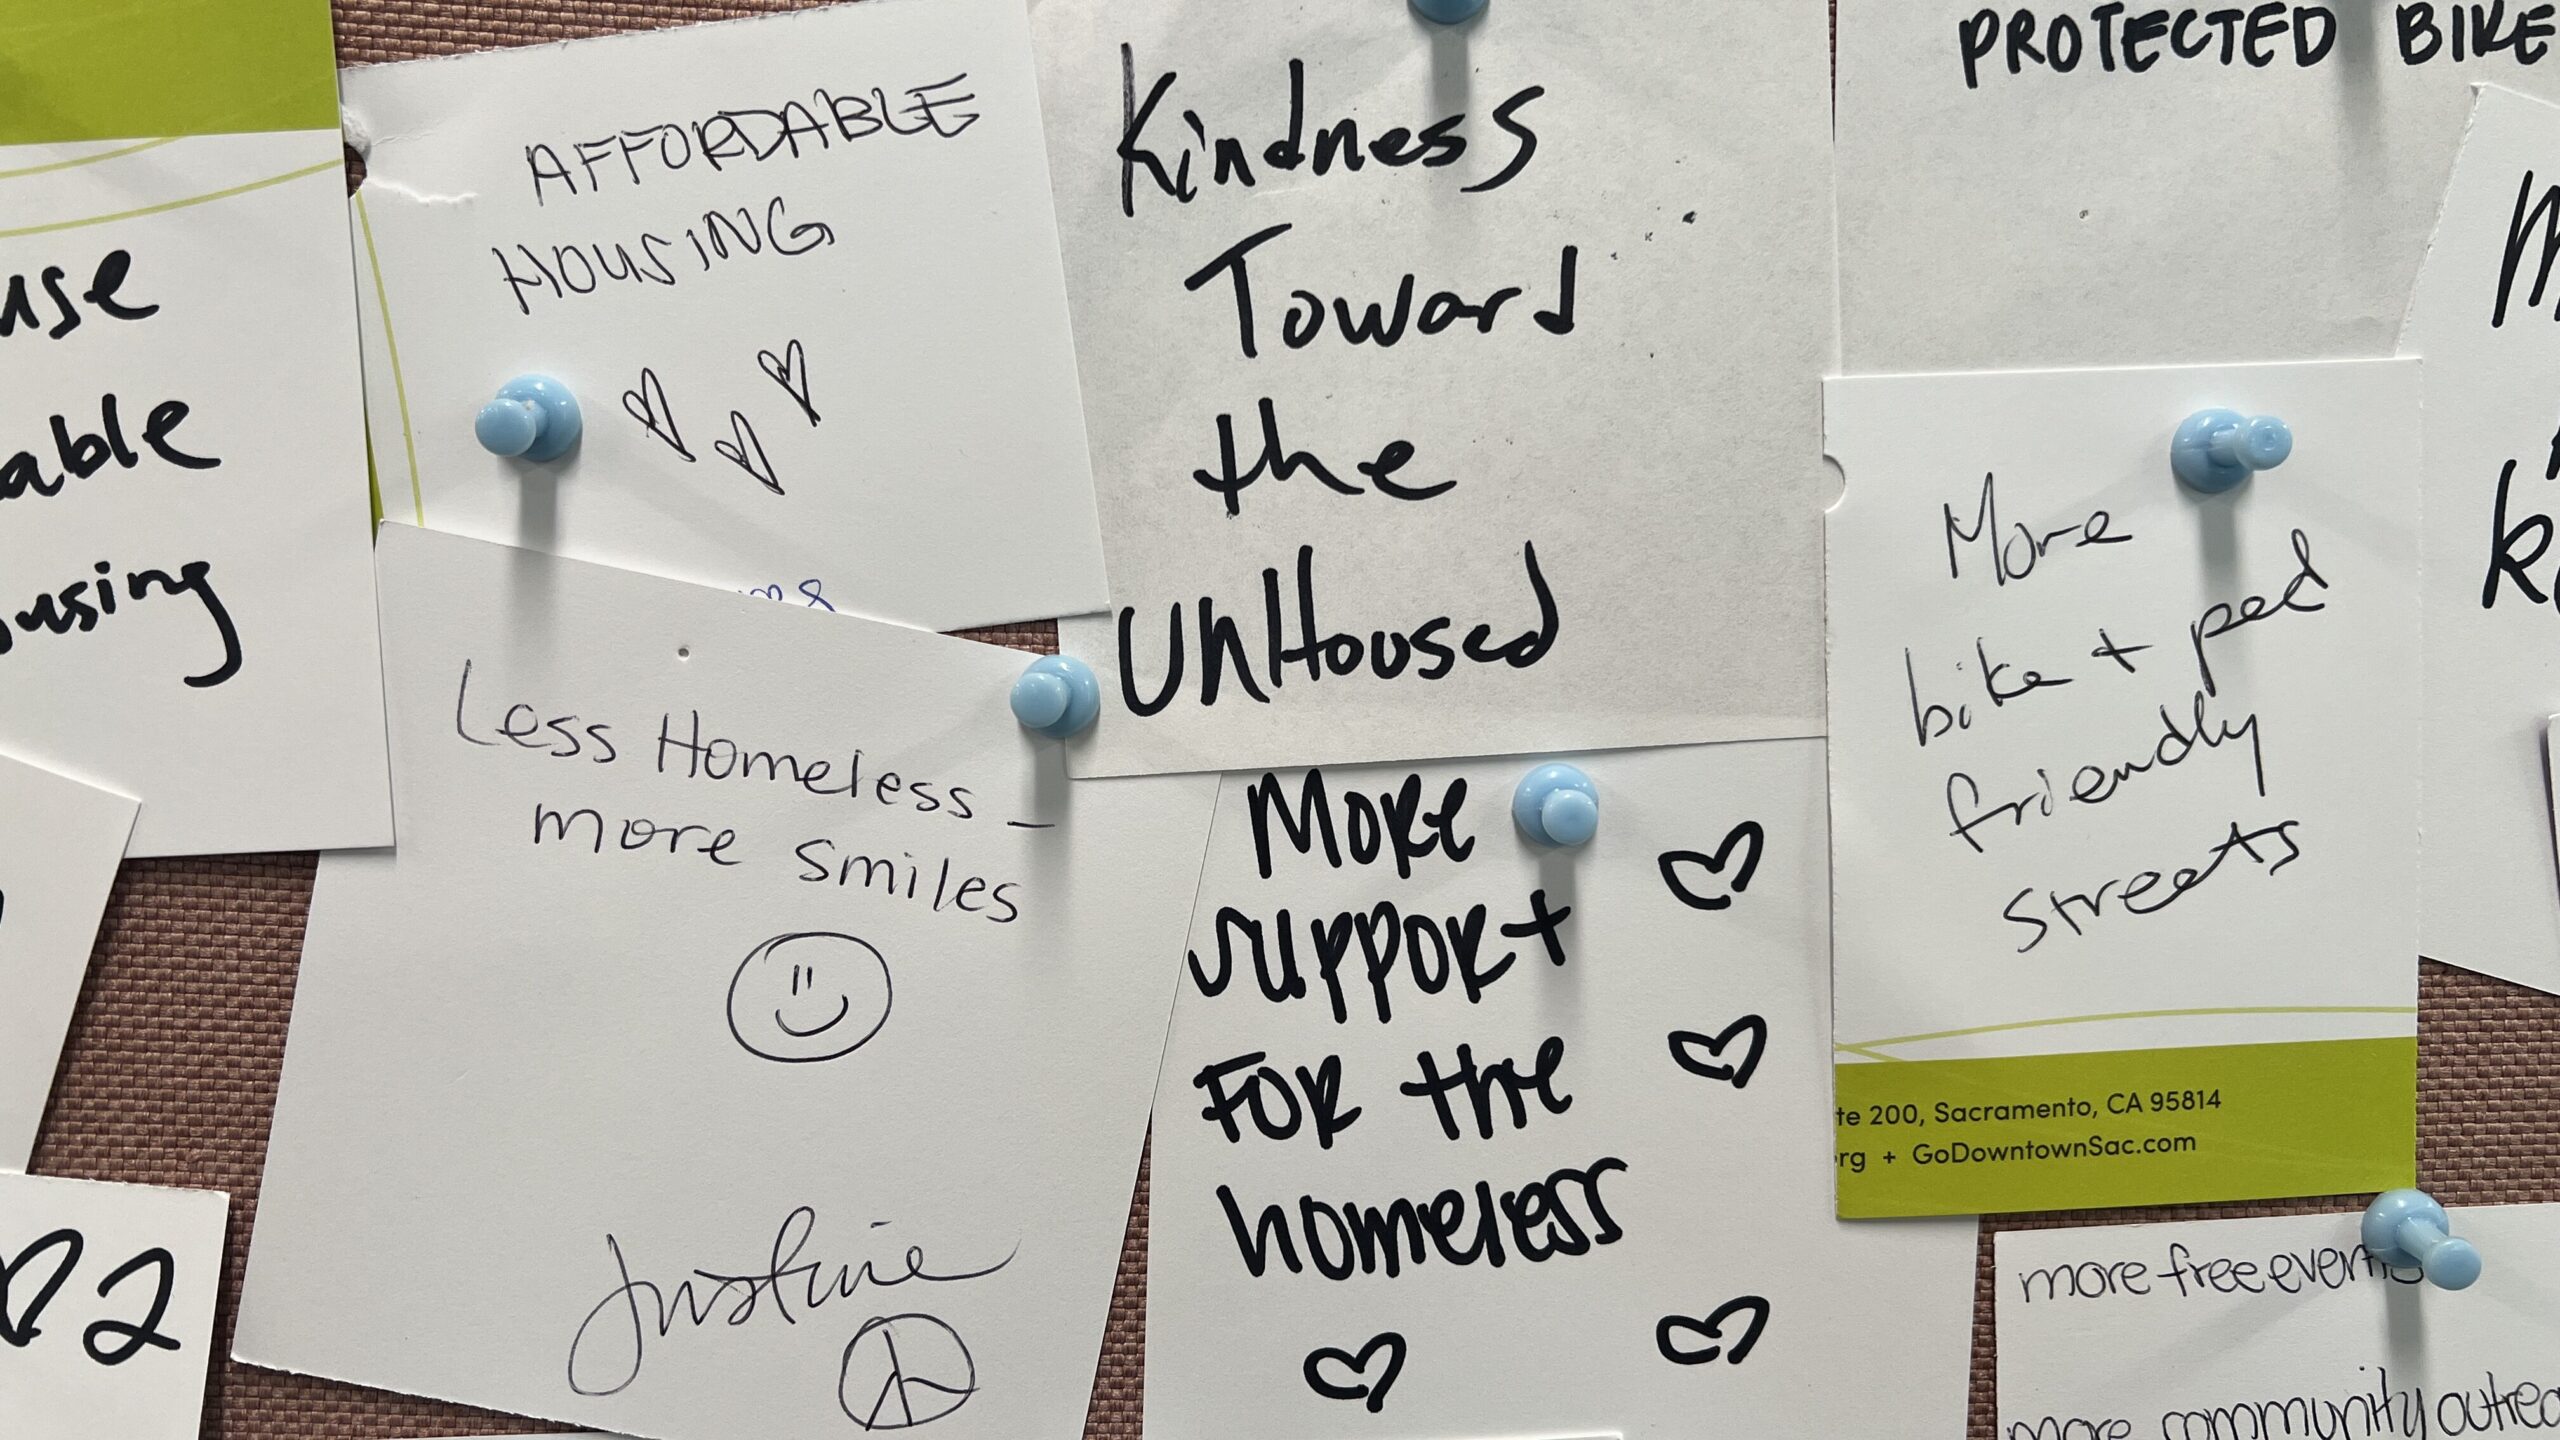 AFFORDABLE
HOUSING
Kindness
Toward
the
UnHoused
PROTECTED BIKE
use
able
ousing
Less Homeless -
more smiles
Justine
More
support
FOR the
homeless
More
bike + ped
friendly
streets
te 200, Sacramento, CA 95814
rg + GoDowntownSac.com
more free events
more community outrea
2